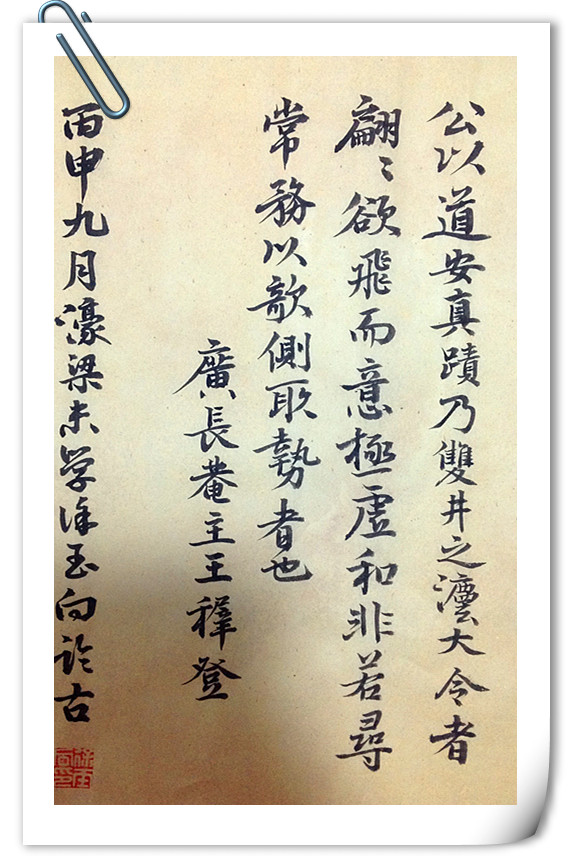 公以道安真蹟乃雙井之灋大令者
翩〻欲飛而意極虛和非若尋
常務以欹側取勢者也
廣長菴主王穉登
丙申九月濠梁末学徐玉向論古